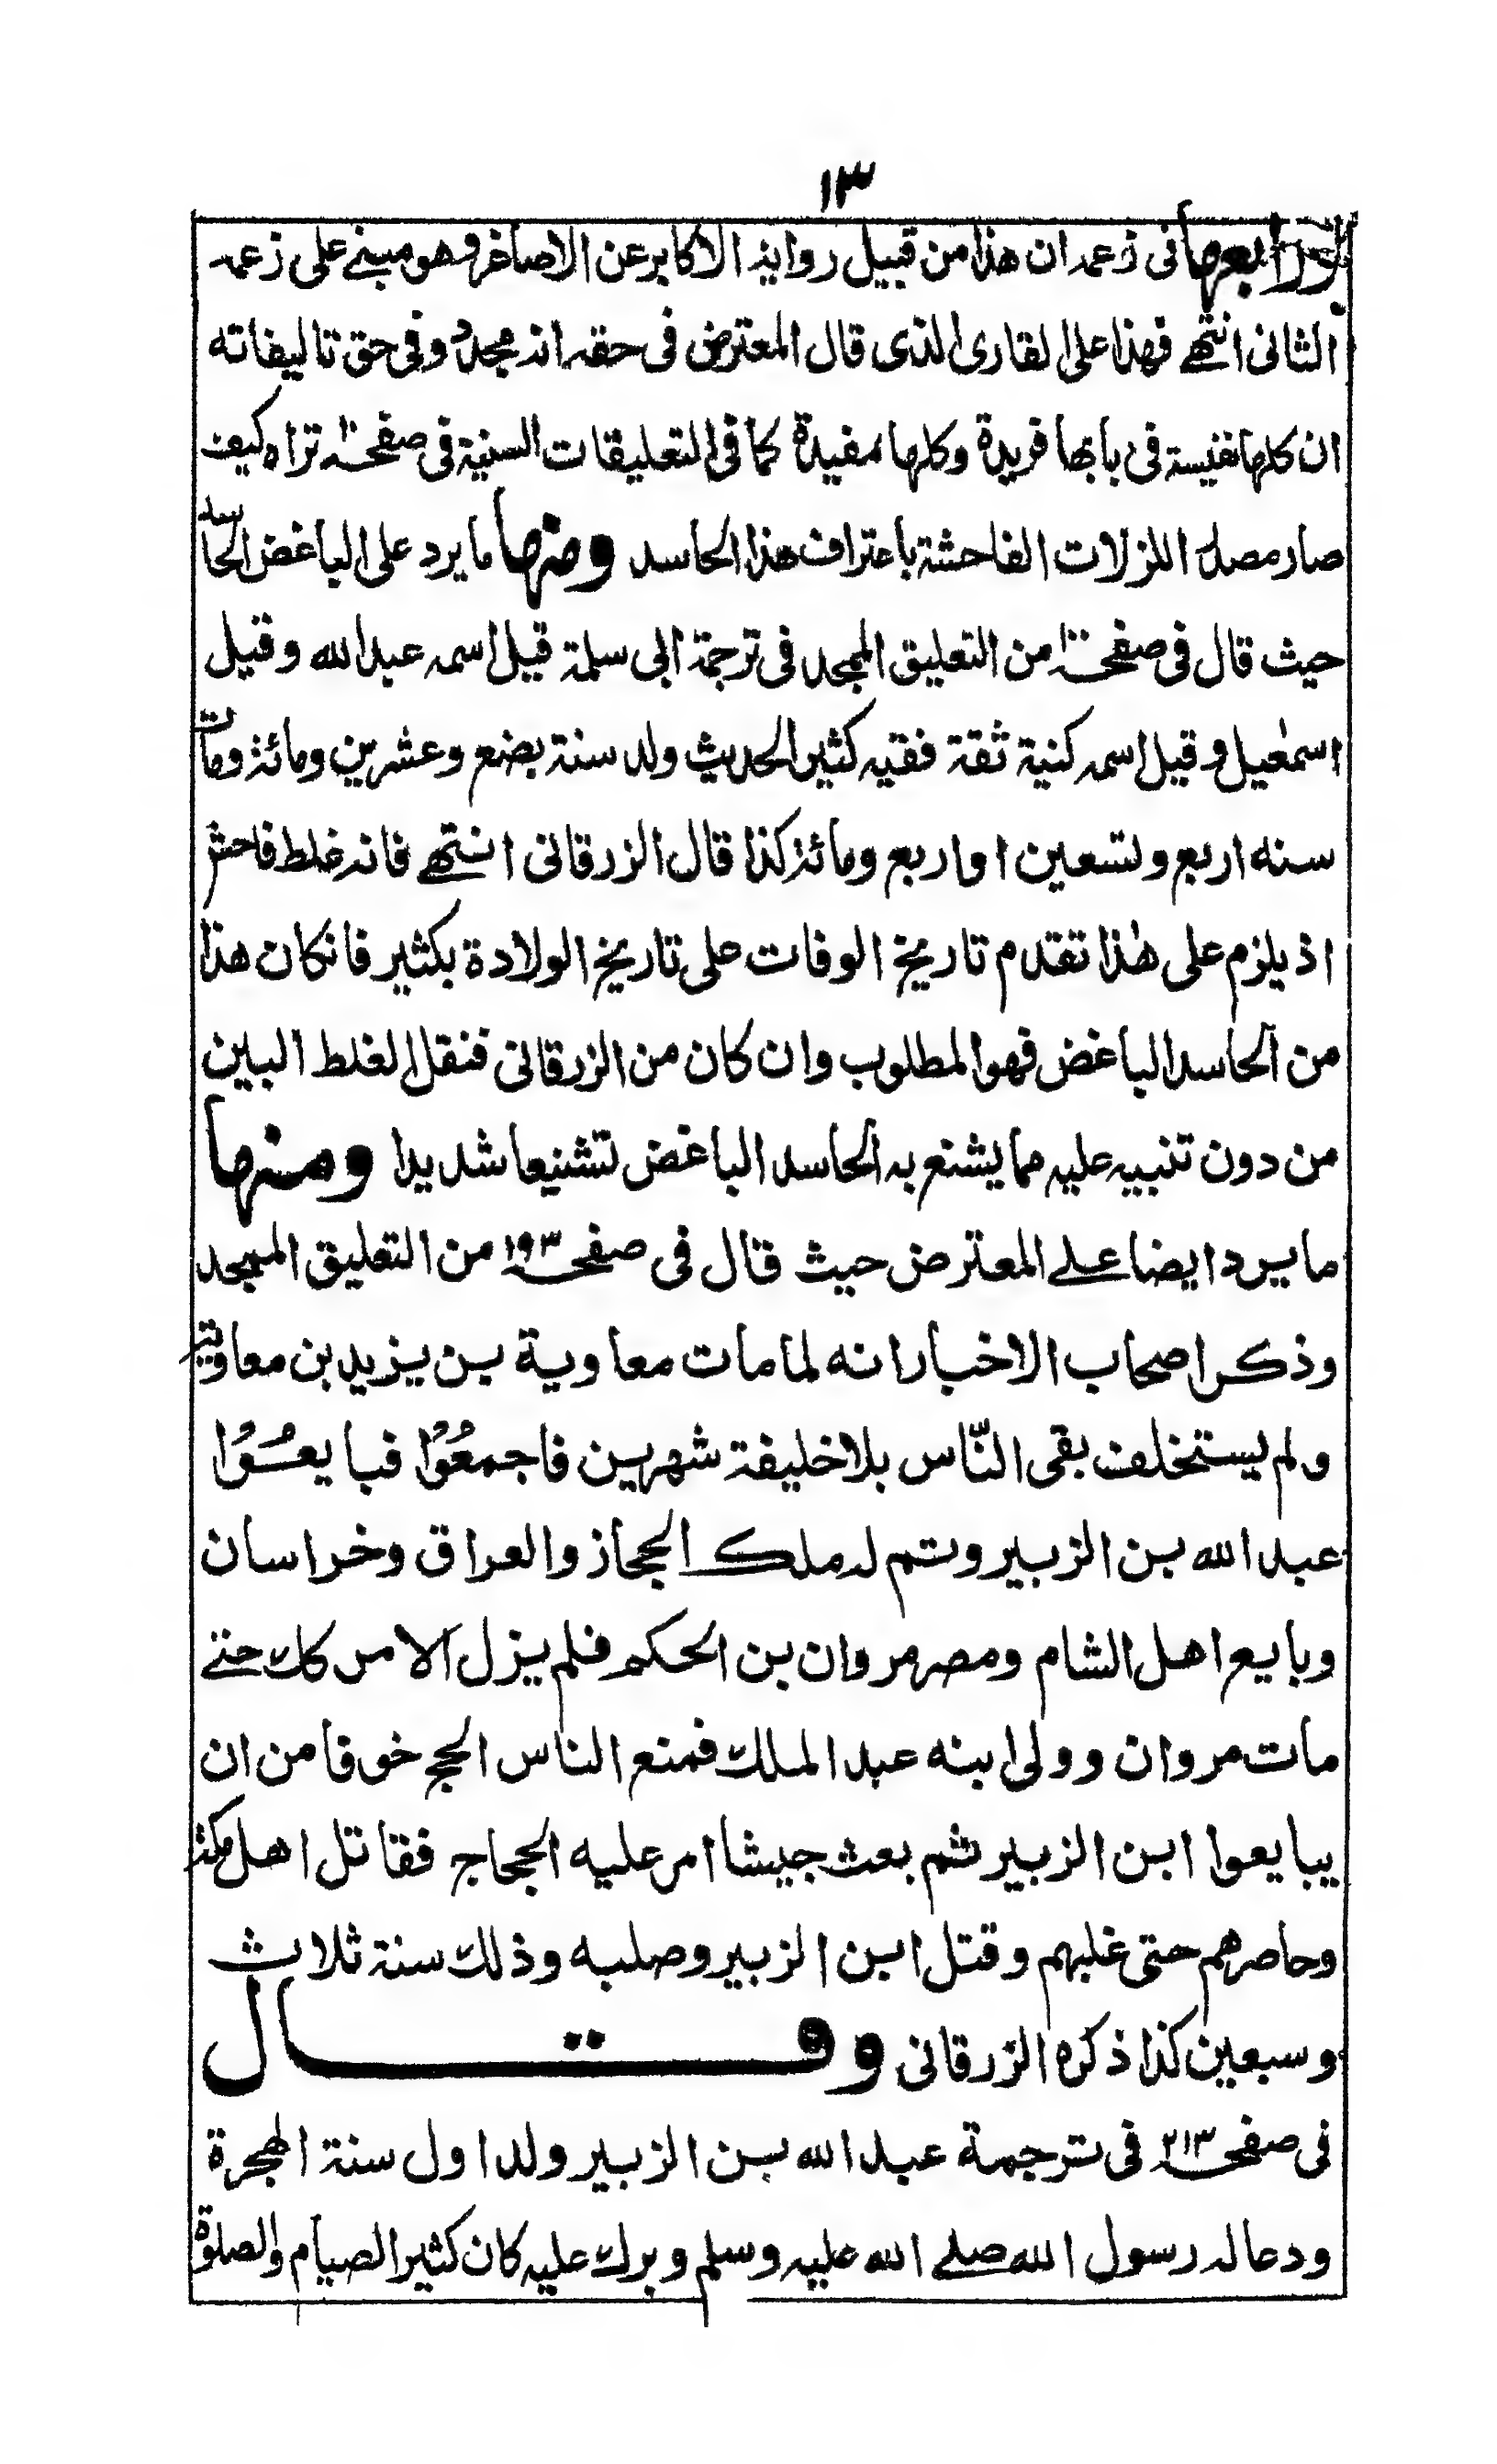 ١٣
ورابعها فى زعمه ان هذا من قبيل رواية الاكابر عن الاصاغر وهو مبنے على زعمه
الثانى انتهے فهذا على القارى الذى قال المعترض فى حقه انه مجدد وفى حق تاليفاته
ان كلها نفيسة فى بابها فريدة وكلها مفيدة كما فى التعليقات السنية فى صفحة تراه كيف
صار مصدر اللزلات الفاحشة باعتراف هذا الحاسد ومنها ما يرد على الباغض الحاسد
حيث قال فى صفحة من التعليق الممجد فى ترجمة ابى سلمة قيل اسمه عبد الله وقيل
اسمٰعيل وقيل اسمه كنية ثقة فقيه كثير الحديث ولد سنة بضع وعشرين ومائة ومات
سنه اربع وتسعين او اربع ومائة كذا قال الزرقانى انتهے فانه غلط فاحش
اذ يلزم على هٰذا تقدم تاريخ الوفات على تاريخ الولادة بكثير فانكان هذا
من الحاسد الباغض فهو المطلوب وان كان من الزرقانى فنقل الغلط البين
من دون تنبيه عليه مما يشنع به الحاسد الباغض تشنيعا شديدا ومنها
ما يرد ايضا علے المعترض حيث قال فى صفحة ١٩٣ من التعليق الممجد
وذكر اصحاب الاخبار انه لما مات معاوية بن يزيد بن معاوية
ولم يستخلف بقى النّاس بلا خليفة شهرين فاجمعُوْا فبايعُوْا
عبد الله بن الزبير وتم له ملك الحجاز والعراق وخراسان
وبايع اهل الشام ومصر مروان بن الحكم فلم يزل الامر كك حتے
مات مروان وولى ابنه عبد الملك فمنع الناس الحج خوفا من ان
يبايعوا ابن الزبير ثم بعث جيشا امر عليه الحجاج فقاتل اهل مكة
وحاصرهم حتى غلبهم وقتل ابن الزبير وصلبه وذلك سنة ثلاث
وسبعين كذا ذكره الزرقانى وقال
فى صفحة ٢١٣ فى ترجمة عبد الله بن الزبير ولد اول سنة الهجرة
ودعا له رسول الله صلے الله عليه وسلم وبرك عليه كان كثير الصيام والصلوة